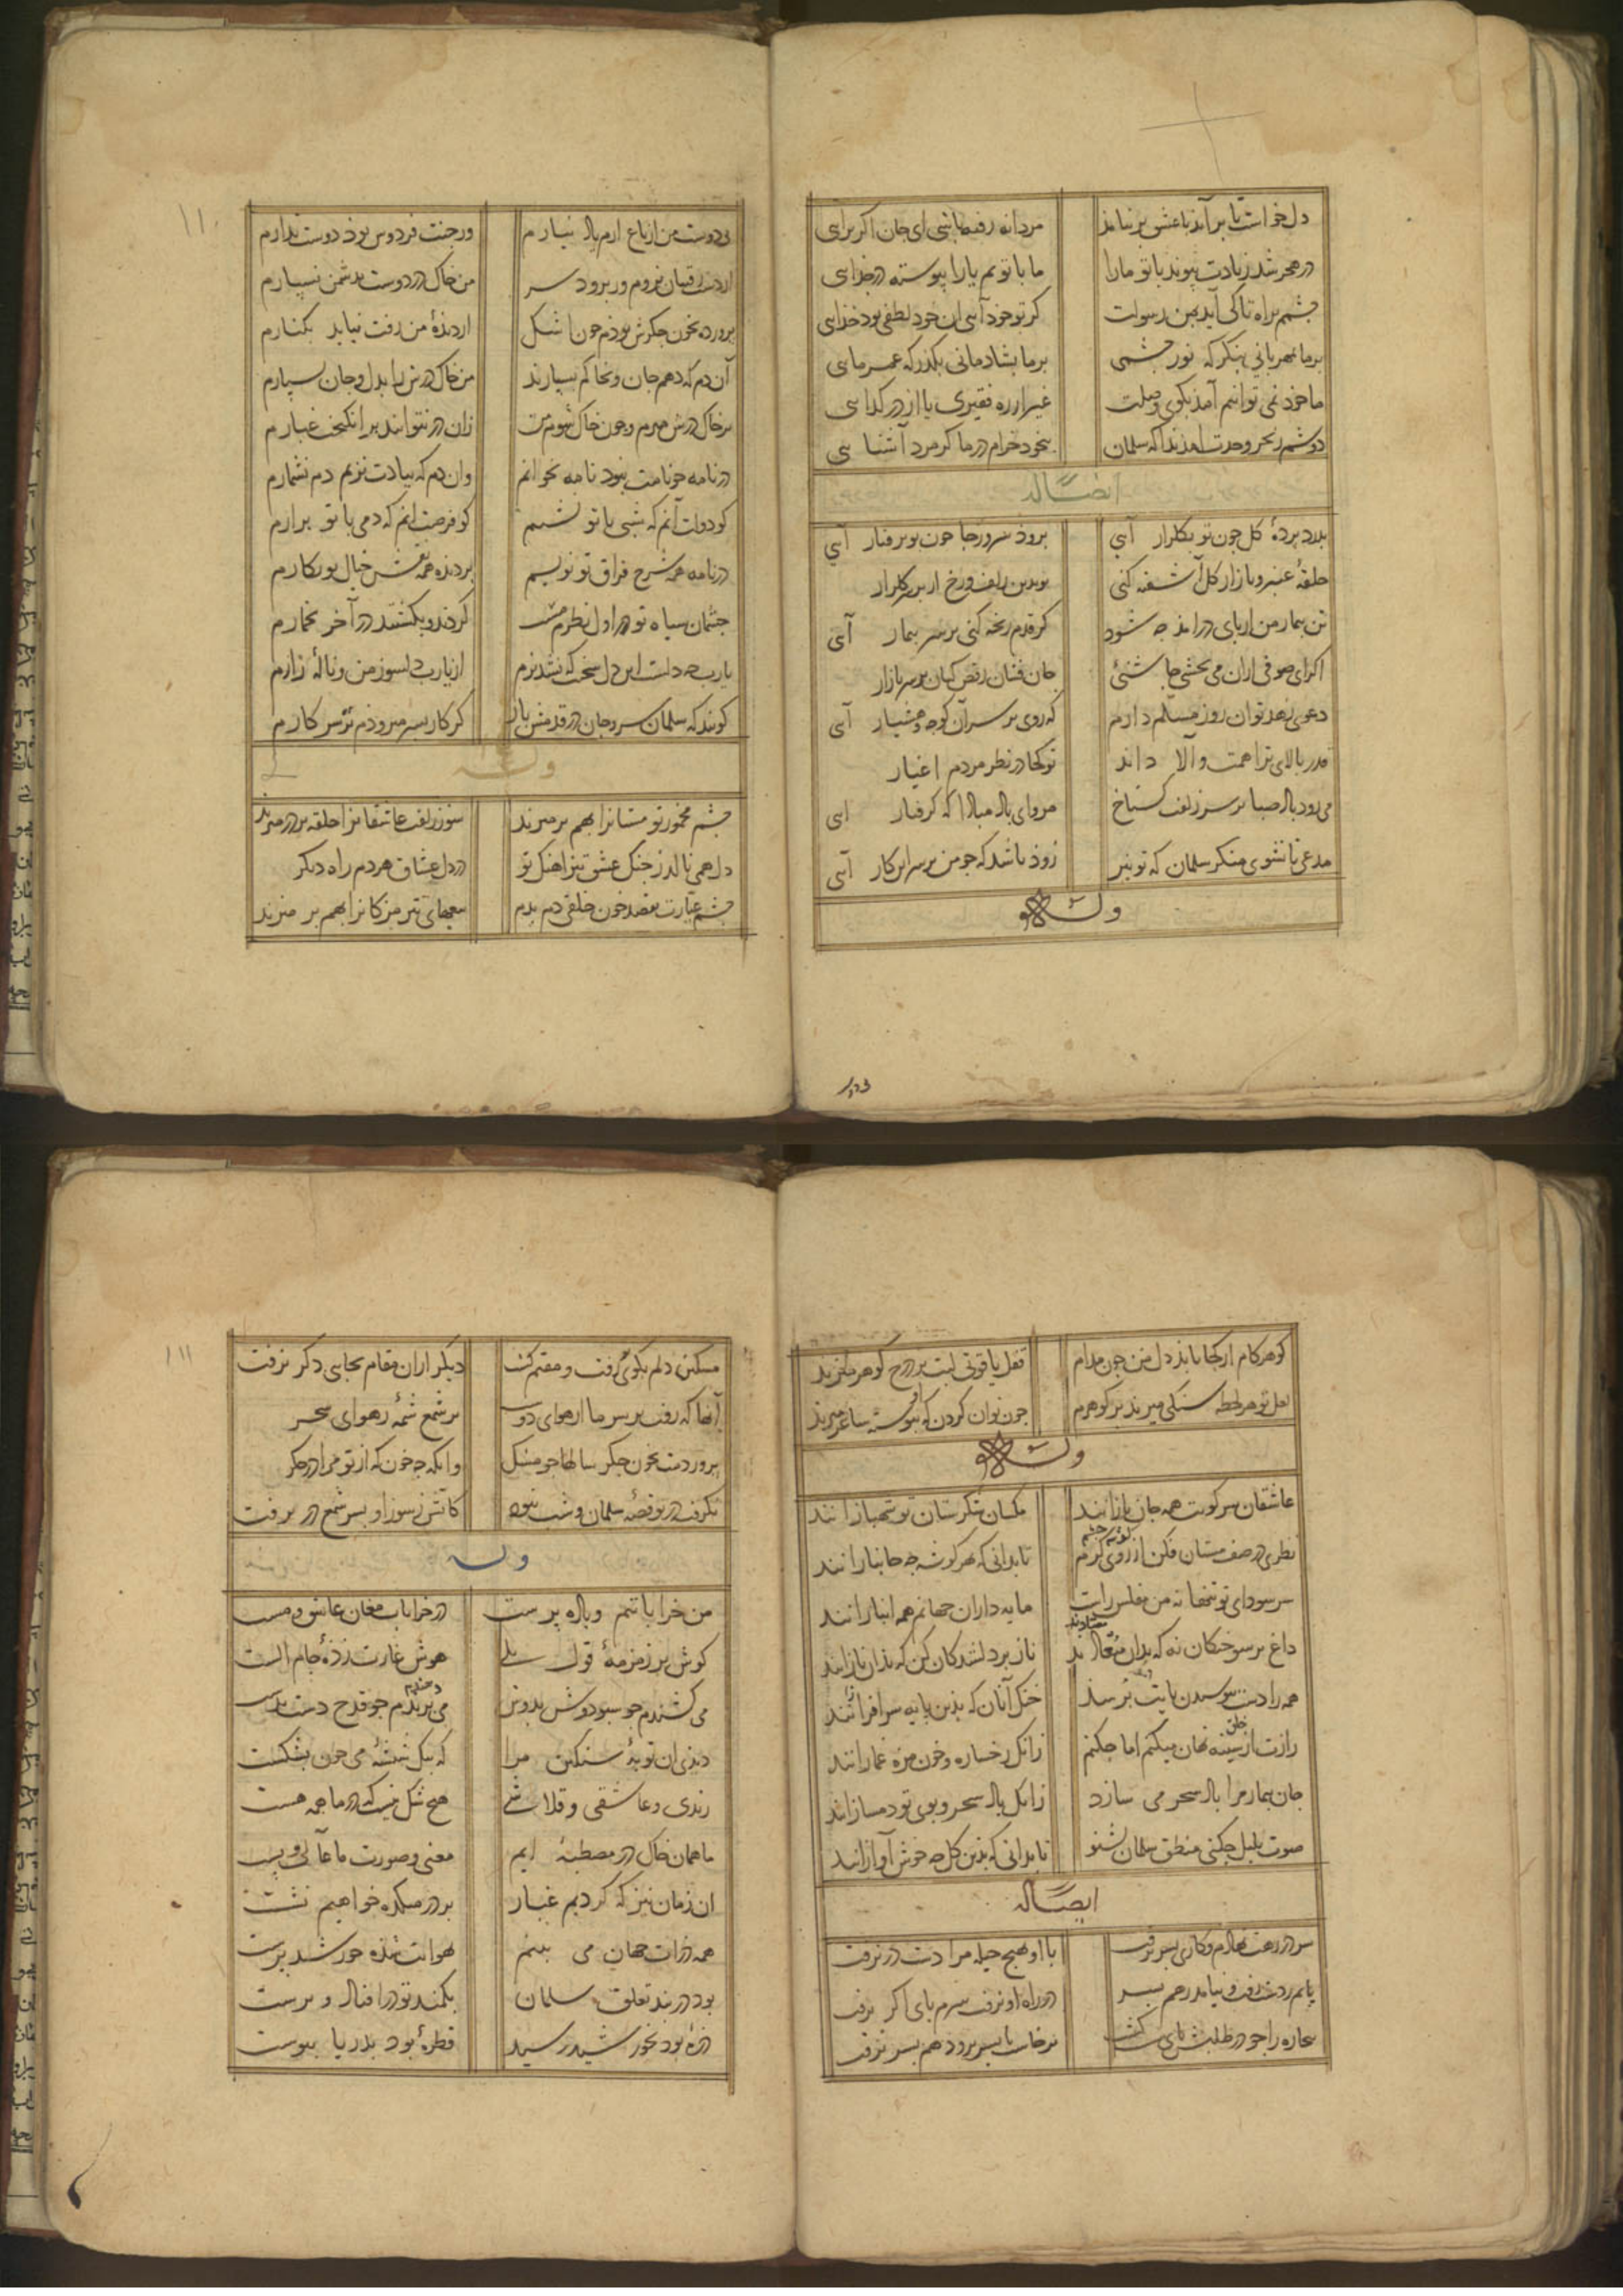 دل خواست تا برآید با عشق بر نیامد مردانه رفته باشی ای جان اکر برای
در هجر شد زیادت پیوند با تو ما را ما با توییم یارا پیوسته در جدایی
چشمم براه تا کی آید بمن رسولت کر تو خود آیی ان خود لطفی بود خدایی
بر ما بمهربانی بنکر که نور چشمی بر ما بشادمانی بکذر که عمر مایی
ما خود نمی توانیم آمد بکوی وصلت غیر از ره فقیری یا از در کدایی
دوشم ز بحر وحدت امد ندا که سلمان بیخود خرام در ما کر مرد آشنایی
ایضا له
بدرد پرده کل چون تو بکلزار آیی برود سرو ز جا چون تو برفتار آیی
حلقه عنبر و بازار کل آشفته کنی تو بدین زلف و رخ ار بر سر کلزار
تن بیمار من از پای درامد چه شود کر قدم رنجه کنی بر سر بیمار آی
اکر ای صوفی ازان می بچشی جاشنئی جان فشان رقص کنان بر سر بازار
دعوی زهد توان روز مسلم دارم که روی بر سر آن کوچه و هشیار آی
قدر بالای ترا همت والا داند تو کجا در نظر مردم اغیار
می رود باد صبا بر سر زلفت کستاخ مرو ای باد مبادا که کرفتار ایی
مدعی تا نشوی منکر سلمان که تو نیز زود باشد که چو من بر سر این کار آیی
وله
١١٠
بی دوست من از باغ ارم یاد نیارم ور جنت فردوس بود دوست ندارم
از دست رقیبان نروم ور برود سر من خاک در دوست بدشمن نسپارم
پرورده بخون جکرش بودم چون اشک از دیده من رفت نیاید بکنارم
آن دم که دهم جان و بخاکم بسپارند من خاک درش را بدل و جان بسپارم
بر خاک درش میرم و چون خاک شوم زان در نتوانند بر انکیخت غبارم
در نامه چو نامت نبود نامه نخوانم وان دم که بیادت نزنم دم نشمارم
کو دولت آنم که شبی با تو نشینم کو فرصت انم که دمی با تو برارم
در نامه همه شرح فراق تو نویسم بر دیده همه نقش خیال تو نکارم
چشمان سیاه تو در اول نظرم مست کردند و بکشتند در آخر بخمارم
یارب چه دلست این دل سخت که نشد نرم از یارب دلسوز من و ناله زارم
کویند که سلمان سر و جان در قدمش باز کر کار بسر میرودم بر سر کارم
وله
چشم مخمور تو مستانرا بهم بر میزند سوز زلفت عاشقانرا حلقه بر در میزند
دل همی نالد ز جنک عشق تیز اهنک تو در دل عشاق هر دم راه دیکر
چشم عیارت بقصد خون خلقی دم بدم تیغهای تیز مژکانرا بهم بر میزند
کوهر کام از کجا یابد دل من چون مدام قفل یاقوتی لبت بر درج کوهر میزند
لعل تو هر لحظه سنکی میزند بر کوهرم چون توان کردن که ساغر میزند
وله
عاشقان سر کویت همه جان بازانند مکسان شکرستان تو شهبازانند
نظری در صف مستان فکن از روی کرم تا بدانی که بهر کوشه چه جانبازانند
سر سودای تو تنها نه من مفلس راست مایه داران جهانم همه انبازانند
داغ بر سوختکان نه که بدان معتادند ناز بر دلشدکان کن که بدان نازانند
همه را دست ببوسیدن پایت نرسد خنک آنان که بدین پایه سر افرازانند
رازت از سینه نهان میکنم اما چکنم زانک رخساره و خون مژه غمازانند
جان بیمار مرا باد سحر می سازد زانک باد سحر و بوی تو دمسازانند
صوت بلبل چکنی منطق سلمان بشنو تا بدانی که بدین کل چه خوش آوازانند
ایضا له
سر در رهت نهادم و کاری بسر نرفت با او بهیچ حیله مرا دست در نرفت
پایم ز دست رفت و نیامد رهم بسر در راه او نرفت سرم پای اکر نرفت
بیچاره را چو در طلبش پای برخاست تا بسر برود هم بسر نرفت
١١١
مسکین دلم بکوی رفت و مقیم کشت دیکر ازان مقام بجایی دکر نرفت
آنها که رفت بر سر ما از هوای دوست بر شمع شمه ز هوای سحر
پروردمت بخون جکر سالها چو مشک وانکه چه خون که از تو مرا در جکر
نکرفت در تو قصه سلمان و شب نبود کاتش ز سوز او بسر شمع در نرفت
وله
من خراباتیم و باده پرست در خرابات مغان عاشق و مست
کوش بر زمزمه قول بلی هوش غارت زده جام الست
می کشندم چو سبو دوش بدوش می برندم چو قدح دست بدست
دیدی ان توبه سنکین مرا که بیک شیشه می چون بشکست
رندی و عاشقی و قلاشی هیچ شک نیست که در ما همه هست
ما همان خاک در مصطبه ایم معنی و صورت ما عالی و پست
ان زمان نیز که کردیم غبار بر در میکده خواهیم نشست
همه ذرات جهان می بینم بهوایت شده خورشید پرست
بود در بند تعلق سلمان بکمند تو درافتاد و برست
ذره بود بخورشید رسید قطره بود بدریا پیوست